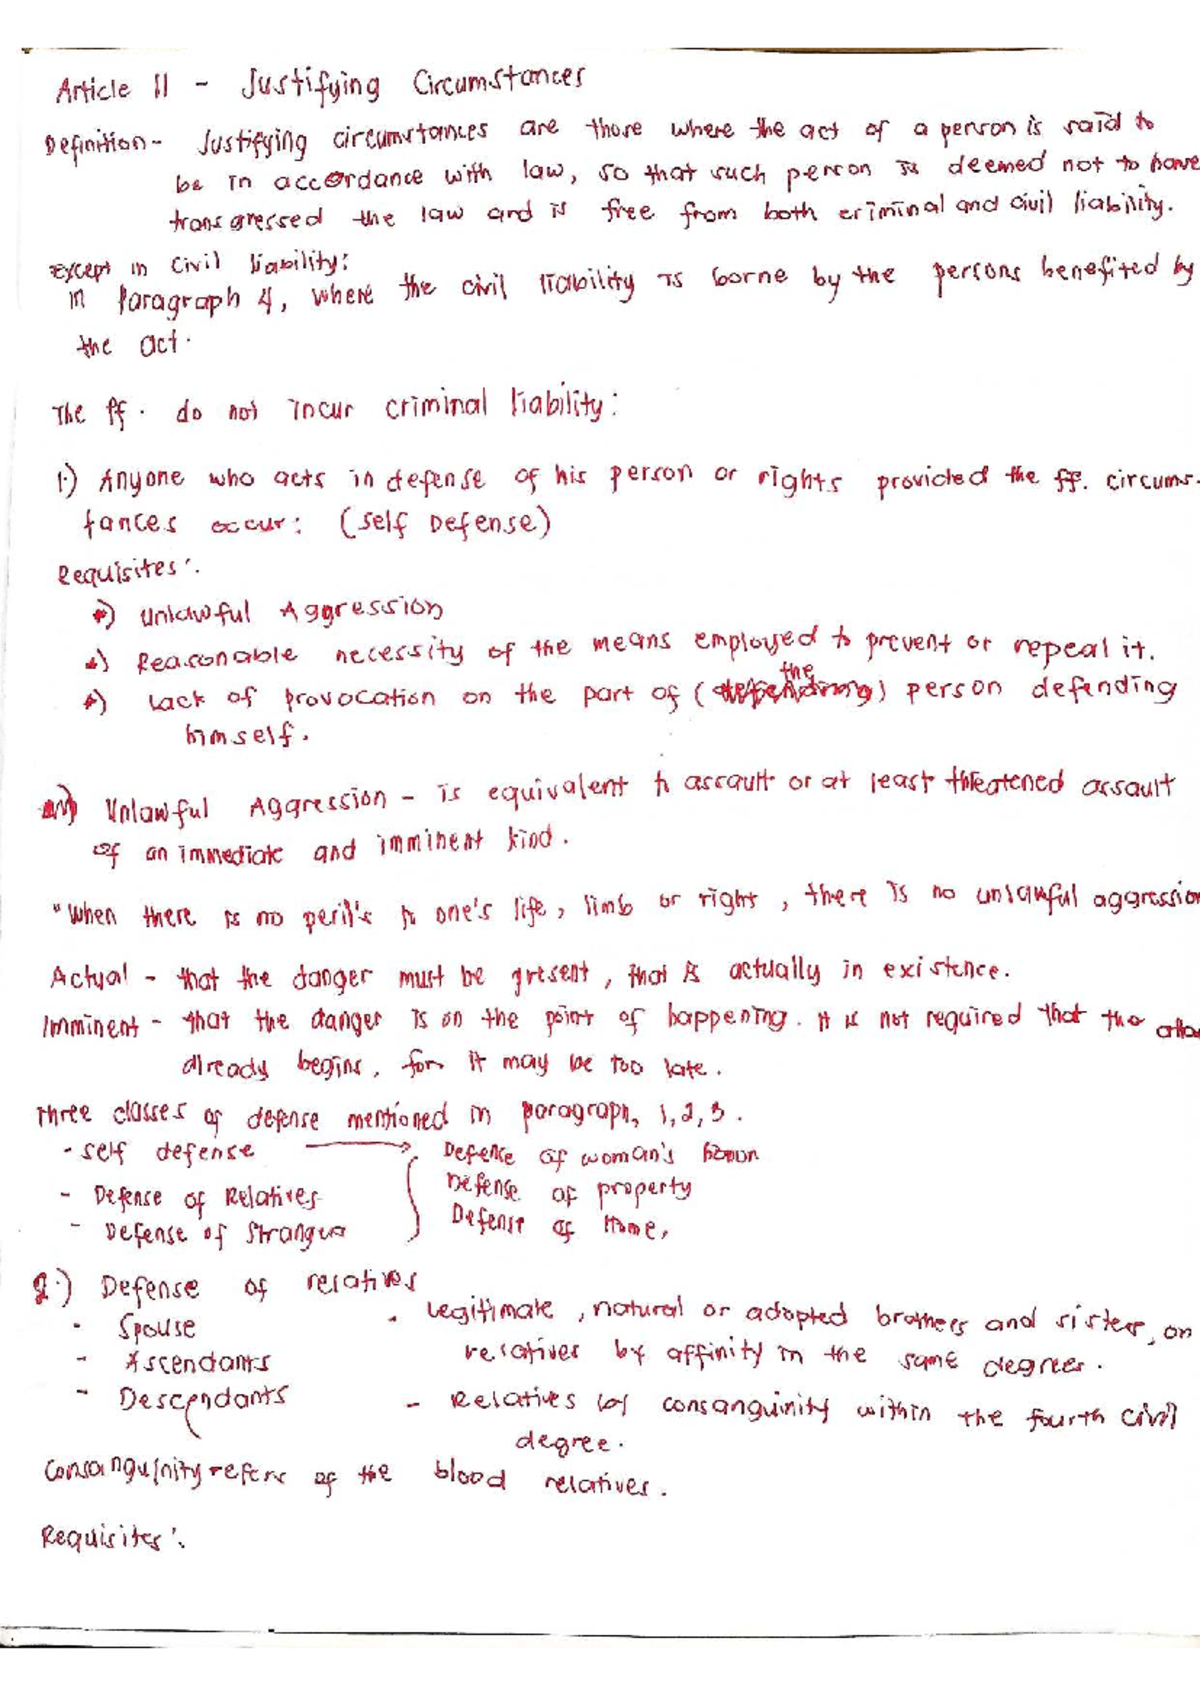 Article 11 - Justifying Circumstances
Definition - Justifying circumstances are those where the act of a person is said to
be in accordance with law, so that such person is deemed not to have
transgressed the law and is free from both criminal and civil liability.
Except in civil liability:
in Paragraph 4, where the civil liability is borne by the persons benefited by
the act.
The ff. do not incur criminal liability:
1.) Anyone who acts in defense of his person or rights provided the ff. circums-
tances occur: (Self Defense)
Requisites:
Unlawful Aggression
Reasonable necessity of the means employed to prevent or repeal it.
the
Lack of provocation on the part of (defending) person defending
himself.
Unlawful Aggression - is equivalent to assault or at least threatened assault
of an immediate and imminent kind.
"When there is no peril's to one's life, limb or right, there is no unlawful aggression
Actual - that the danger must be present, that is actually in existence.
Imminent - that the danger is on the point of happening. It is not required that the
already begins, for it may be too late.
Three classes of defense mentioned in paragraph, 1,2,3.
- self defense → Defense of woman's honor
- Defense of Relatives Defense of property
- Defense of Stranger Defense of Home,
2.) Defense of relatives
- Spouse - Legitimate, natural or adopted brothers and sisters, or
- Ascendants relatives by affinity in the same degrees.
- Descendants - Relatives by consanguinity within the fourth civil
degree.
Consanguinity refers of the blood relatives.
Requisites: